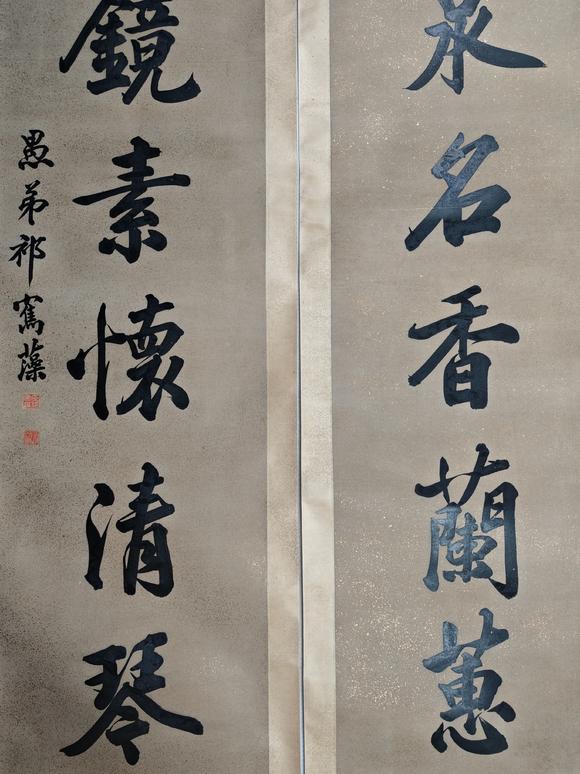 永名香蘭蕙
鏡素懷清琴
愚弟祁寯藻